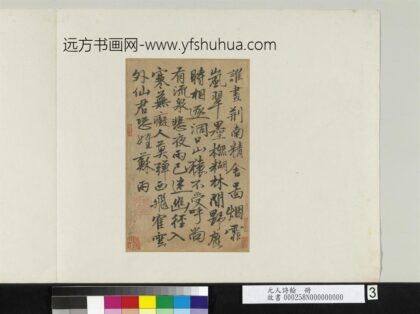 远方书画网-www.yfshuhua.com
誰畫荊南精舍圖烟霏
嵐翠墨模糊林間野鹿
時相逐洞口山猿不受呼尚
有流泉悲夜雨已迷幽徑入
寒蕪人莫彈西飛隺雲
外仙君恐姓蘇 雨
元人詩翰 冊
故書 000258N000000000
3